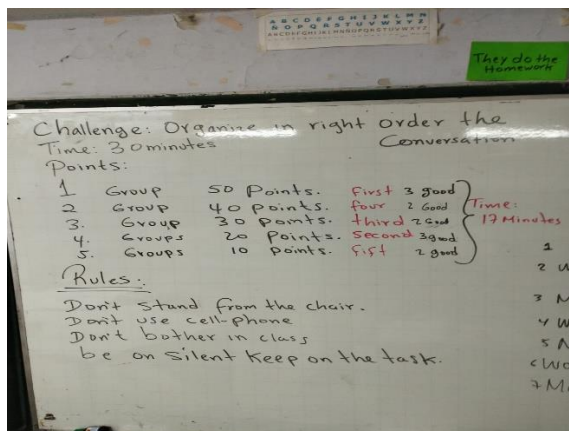 A B C D E F G H I J K L M N
N O P Q R S T U V W X Y Z
They do the
Homework
Challenge: Organize in right order the
Conversation
Time: 30 minutes
Points:
1 Group 50 Points. First 3 good
2 Group 40 points. four 2 Good
3. Group 30 points. third 2 Good
4. Groups 20 Points. Second 3 good
5. Groups 10 points. Fift 2 good
Time:
17 Minutes
Rules:
Don't stand from the chair.
Don't use cell-phone
Don't bother in class
be on silent Keep on the task.
1
2 W
3 M
4 W
5 M
7 M